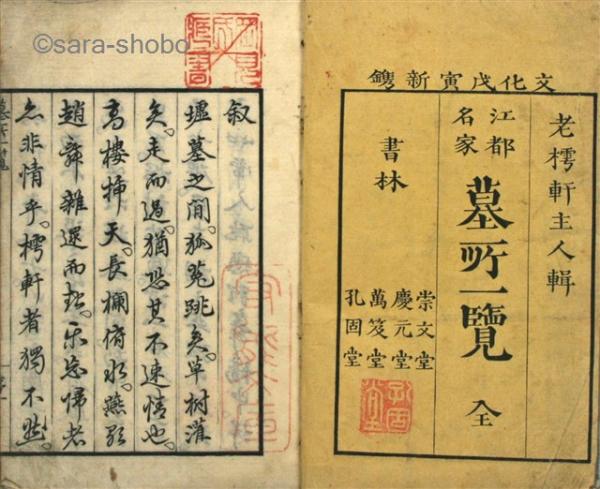 ©sara-shobo
文化戊寅新鐫
老樗軒主人輯
江都名家
墓所一覽 全
書林
崇文堂
慶元堂
萬笈堂
孔固堂
叙
墟墓之間。狐兎跳矣。草樹灌
矣。走而過。猶恐其不速。情也。
高樓挿天。長欄俯水。燕歌
趙舞雜遝而 樂忘歸者
亦非情乎。樗軒者獨不然。